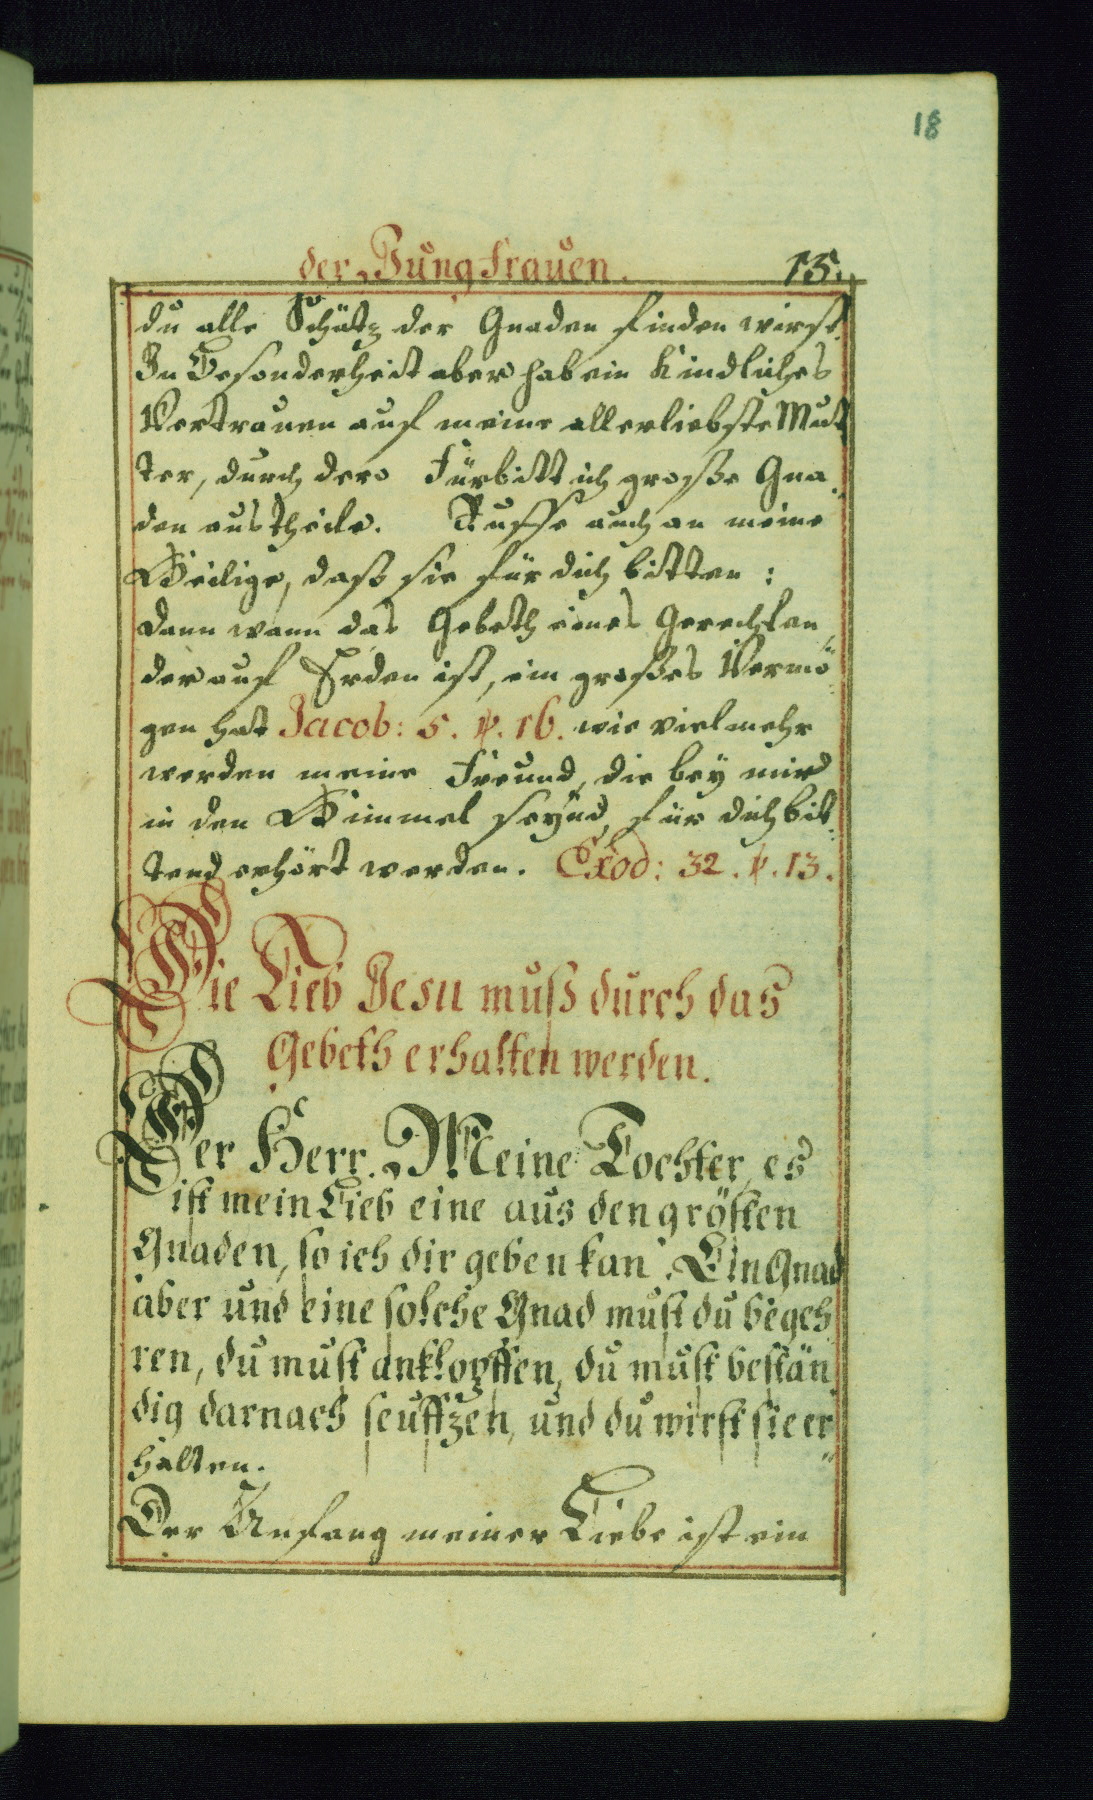 18
der Jungfrauen. 15.
du alle Schätz der Gnaden finden wirst.
In Besonderheit aber hab ein Kindliches
Vertrauen auf meine allerliebste Mut
ter, durch dero Fürbitt ich große Gna
den austheile. Ruffe auch an meine
Heilige, daß sie für dich bitten:
dann wann das Gebeth eines Gerechten,
der auf Erden ist, ein großes Vermö
gen hat Jacob: 5. ꝟ. 16. wie vielmehr
werden meine Freund, die bey mir
in den Himmel seynd, für dich bit
tend erhört werden. Exod: 32. ꝟ. 13.
Die Lieb Jesu muß durch das
Gebeth erhalten werden.
Der Herr. Meine Tochter, es
ist mein Lieb eine aus den grösten
Gnaden, so ich dir geben kan. Ein Gnad
aber und eine solche Gnad must du begeh
ren, du must anklopffen, du must bestän
dig darnach seuffzen, und du wirst sie er
halten.
Der Anfang meiner Liebe ist ein